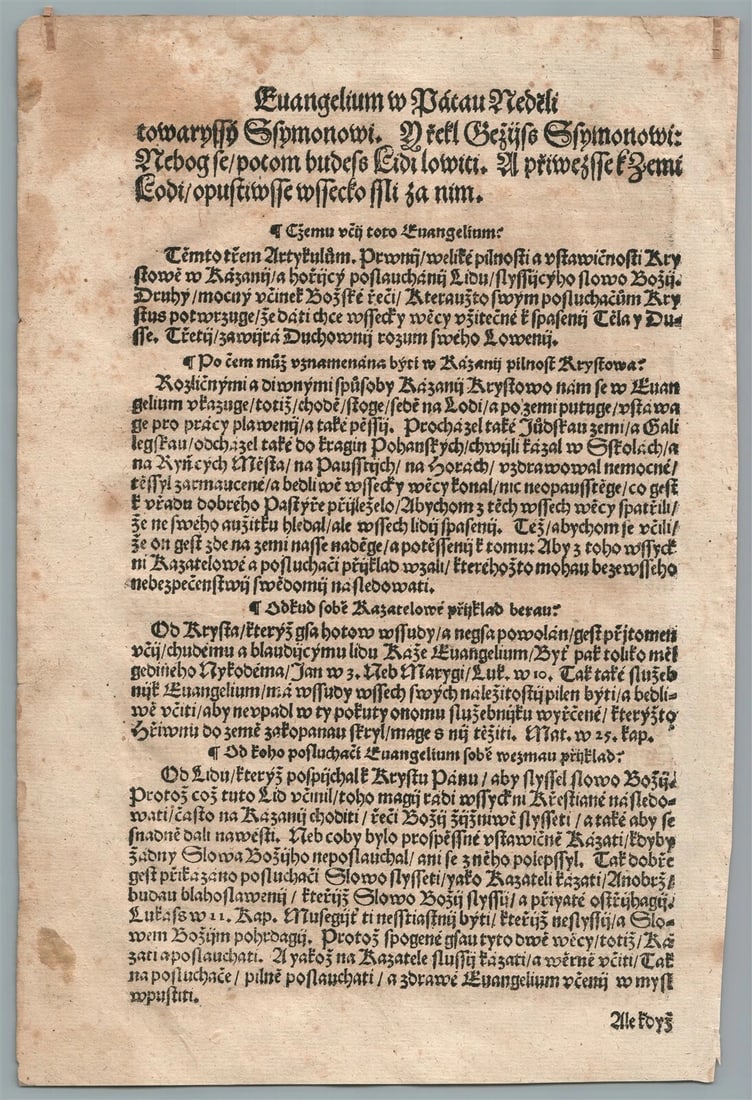 Euangelium w Pátau Neděli
towaryssy Ssymonowi. Y řekl Gežijss Ssymonowi:
Nebog se/potom budess Lidi lowiti. A přiwezsse k Zemi
Lodi/opustiwsse wssecko ssli za nim.
¶ Cžemu včij toto Euangelium?
Těmto třem Artykulům. Prwnij/weliké pilnosti a vstawičnosti Kry
stowě w Kázanij/a hořijcý poslauchánij Lidu/slyssijcýho slowo Božij.
Druhý/mocný včinek Božské řeči/Kteraužto swým posluchačům Kry
stus potwrzuge/že dáti chce wssecky wěcy vžitečné k spasenij Těla y Du-
sse. Třetij/zawijrá Duchownij rozum swého Lowenij.
¶ Po čem můž vznamenána býti w Kázanij pilnost Krystowa?
Rozličnými a diwnými spůsoby Kázanij Krystowo nám se w Euan
gelium vkazuge/totiž/chodě/stoge/sedě na Lodi/a po zemi putuge/vstawa
ge pro prácy plawenij/a také pěssij. Procházel také Jůdskau zemi/a Gali
legskau/odcházel také do kragin Pohanských/chwijli kázal w Sskolách/a
na Ryňcých Města/na Pausstijch/na Horách/vzdrawowal nemocné/
těssyl zarmaucené/a bedliwě wssecky wěcy konal/nic neopausstěge/co gest
k vřadu dobrého Pastýře přijleželo/Abychom z těch wssech wěcý spatřili/
že ne swého aužitku hledal/ale wssech lidij spasenij. Též/abychom se včili/
že on gest zde na zemi nasse naděge/a potěssenij k tomu: Aby z toho wssyck
ni Kazatelowé a posluchači přijklad wzali/kteréhožto mohau beze wsseho
nebezpečenstwij swědomij následowati.
¶ Odkud sobě Kazatelowé přijklad berau?
Od Krysta/kterýž gsa hotow wssudy/a negsa powolán/gest přijtomen
včij/chudému a blaudijcýmu lidu Káže Euangelium/Byť pak toliko měl
gediného Nykodéma/Jan w 3. Neb Marygi/Luk. w 10. Tak také služeb
nijk Euangelium/má wssudy wssech swých náležitostij pilen býti/a bedli-
wě včiti/aby nevpadl w ty pokuty onomu služebnijku wyřčené/kterýžto
Hřiwnu do země zakopanau skryl/mage s nij těžiti. Mat. w 25. kap.
¶ Od koho posluchači Euangelium sobě wezmau přijklad?
Od Lidu/kterýž pospijchal k Krystu Pánu/aby slyssel slowo Božij.
Protož což tuto Lid včinil/toho magij rádi wssyckni Křestiané následo-
wati/často na Kázanij choditi/řeči Božij žijžniwě slysseti/a také aby se
snadně dali nawésti. Neb co by bylo prospěssné vstawičně Kázati/kdyby
žádný Slowa Božijho neposlauchal/ani se z něho polepssyl. Tak dobře
gest přikázáno posluchači Slowo slysseti/yako Kazateli kázati/Anobrž
budau blahoslawenij/kteřijž Slowo Božij slyssij/a přiyaté ostřijhagij.
Lukáss w 11. Kap. Musegijť ti nesstiastnij býti/kteřijž neslyssij/a Slo-
wem Božijm pohrdagij. Protož spogené gsau tyto dwě wěcy/totiž/Ká
zati a poslauchati. A yakož na Kazatele slussij kázati/a wěrně včiti/Tak
na posluchače/pilně poslauchati/a zdrawé Euangelium včenij w mysl
wpustiti.
Ale když